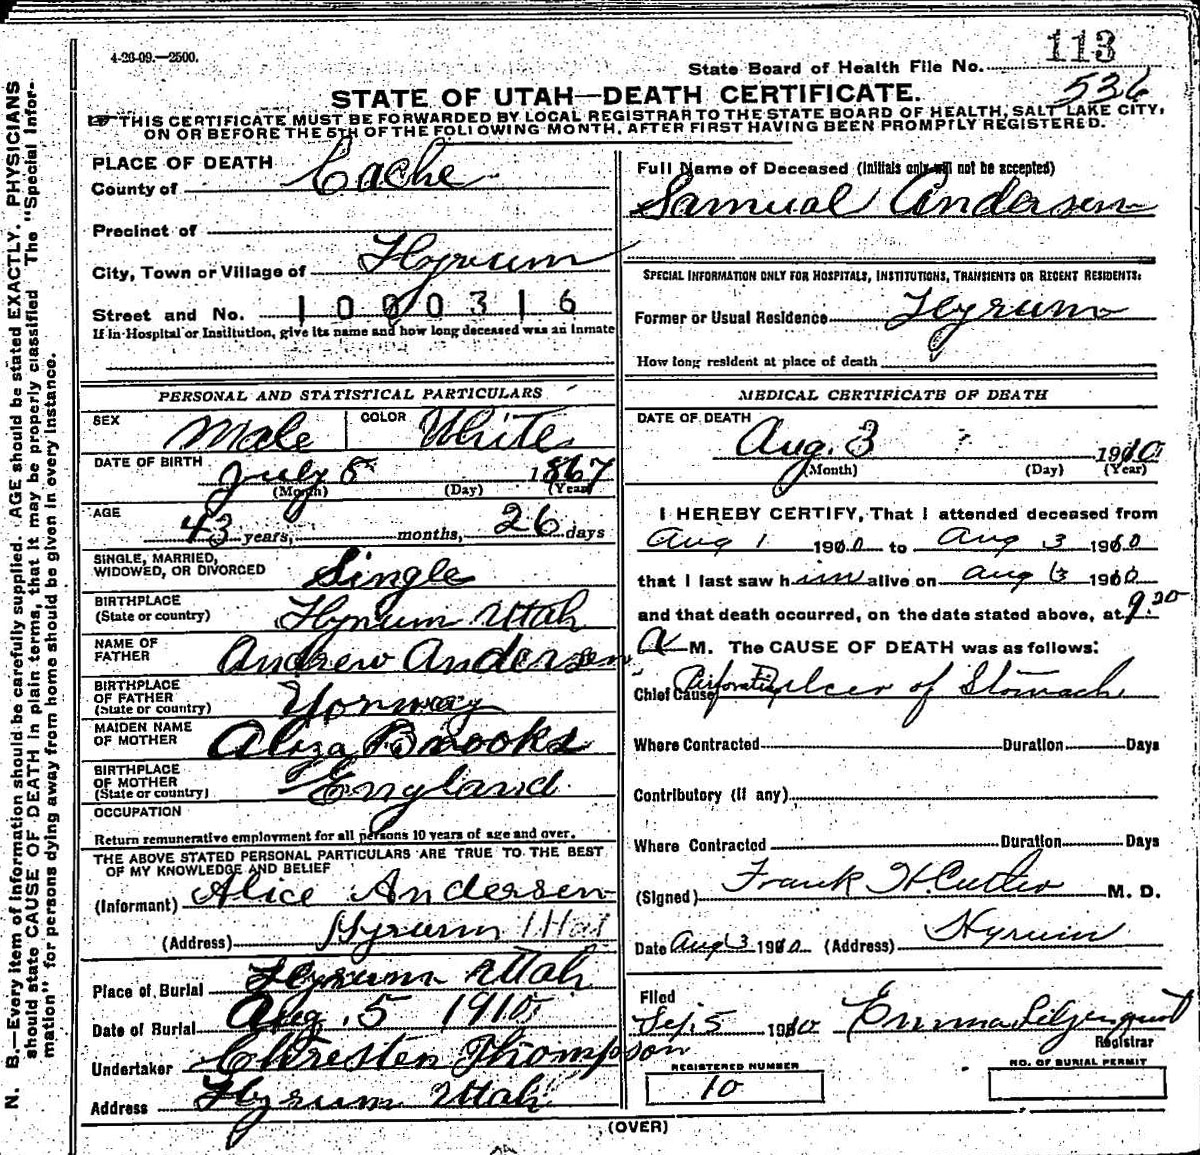 4-26-09.—2500.
113
State Board of Health File No.
536
STATE OF UTAH—DEATH CERTIFICATE.
THIS CERTIFICATE MUST BE FORWARDED BY LOCAL REGISTRAR TO THE STATE BOARD OF HEALTH, SALT LAKE CITY,
ON OR BEFORE THE 5TH OF THE FOLLOWING MONTH, AFTER FIRST HAVING BEEN PROMPTLY REGISTERED.
N. B.—Every item of information should be carefully supplied. AGE should be stated EXACTLY. PHYSICIANS
should state CAUSE OF DEATH in plain terms, that it may be properly classified. The "Special Infor-
mation" for persons dying away from home should be given in every instance.
PLACE OF DEATH
County of Cache
Precinct of
City, Town or Village of Hyrum
Street and No. 1000316
If in Hospital or Institution, give its name and how long deceased was an inmate
PERSONAL AND STATISTICAL PARTICULARS
SEX Male COLOR White
DATE OF BIRTH July 8 1867
(Month) (Day) (Year)
AGE 43 years, months, 26 days
SINGLE, MARRIED,
WIDOWED, OR DIVORCED Single
BIRTHPLACE
(State or country) Hyrum Utah
NAME OF
FATHER Andrew Andersen
BIRTHPLACE
OF FATHER
(State or country) Norway
MAIDEN NAME
OF MOTHER Aliza Brooks
BIRTHPLACE
OF MOTHER
(State or country) England
OCCUPATION
Return remunerative employment for all persons 10 years of age and over.
THE ABOVE STATED PERSONAL PARTICULARS ARE TRUE TO THE BEST
OF MY KNOWLEDGE AND BELIEF
(Informant) Alice Andersen
(Address) Hyrum Utah
Place of Burial Hyrum Utah
Date of Burial Aug. 5 1910
Undertaker Chresten Thompson
Address Hyrum Utah
Full Name of Deceased (Initials only will not be accepted)
Samual Andersen
SPECIAL INFORMATION ONLY FOR HOSPITALS, INSTITUTIONS, TRANSIENTS OR RECENT RESIDENTS:
Former or Usual Residence Hyrum
How long resident at place of death
MEDICAL CERTIFICATE OF DEATH
DATE OF DEATH
Aug. 3 1910
(Month) (Day) (Year)
I HEREBY CERTIFY, That I attended deceased from
Aug 1 1910 to Aug 3 1910
that I last saw him alive on Aug 3 1910
and that death occurred, on the date stated above, at 9.30
A M. The CAUSE OF DEATH was as follows:
Chief Cause Perforating ulcer of Stomach
Where Contracted Duration Days
Contributory (if any)
Where Contracted Duration Days
(Signed) Frank H. Cutler M. D.
Date Aug 3 1910 (Address) Hyrum
Filed
Sep. 5 1910 Emma Liljenquist
Registrar
REGISTERED NUMBER
10
NO. OF BURIAL PERMIT
(OVER)